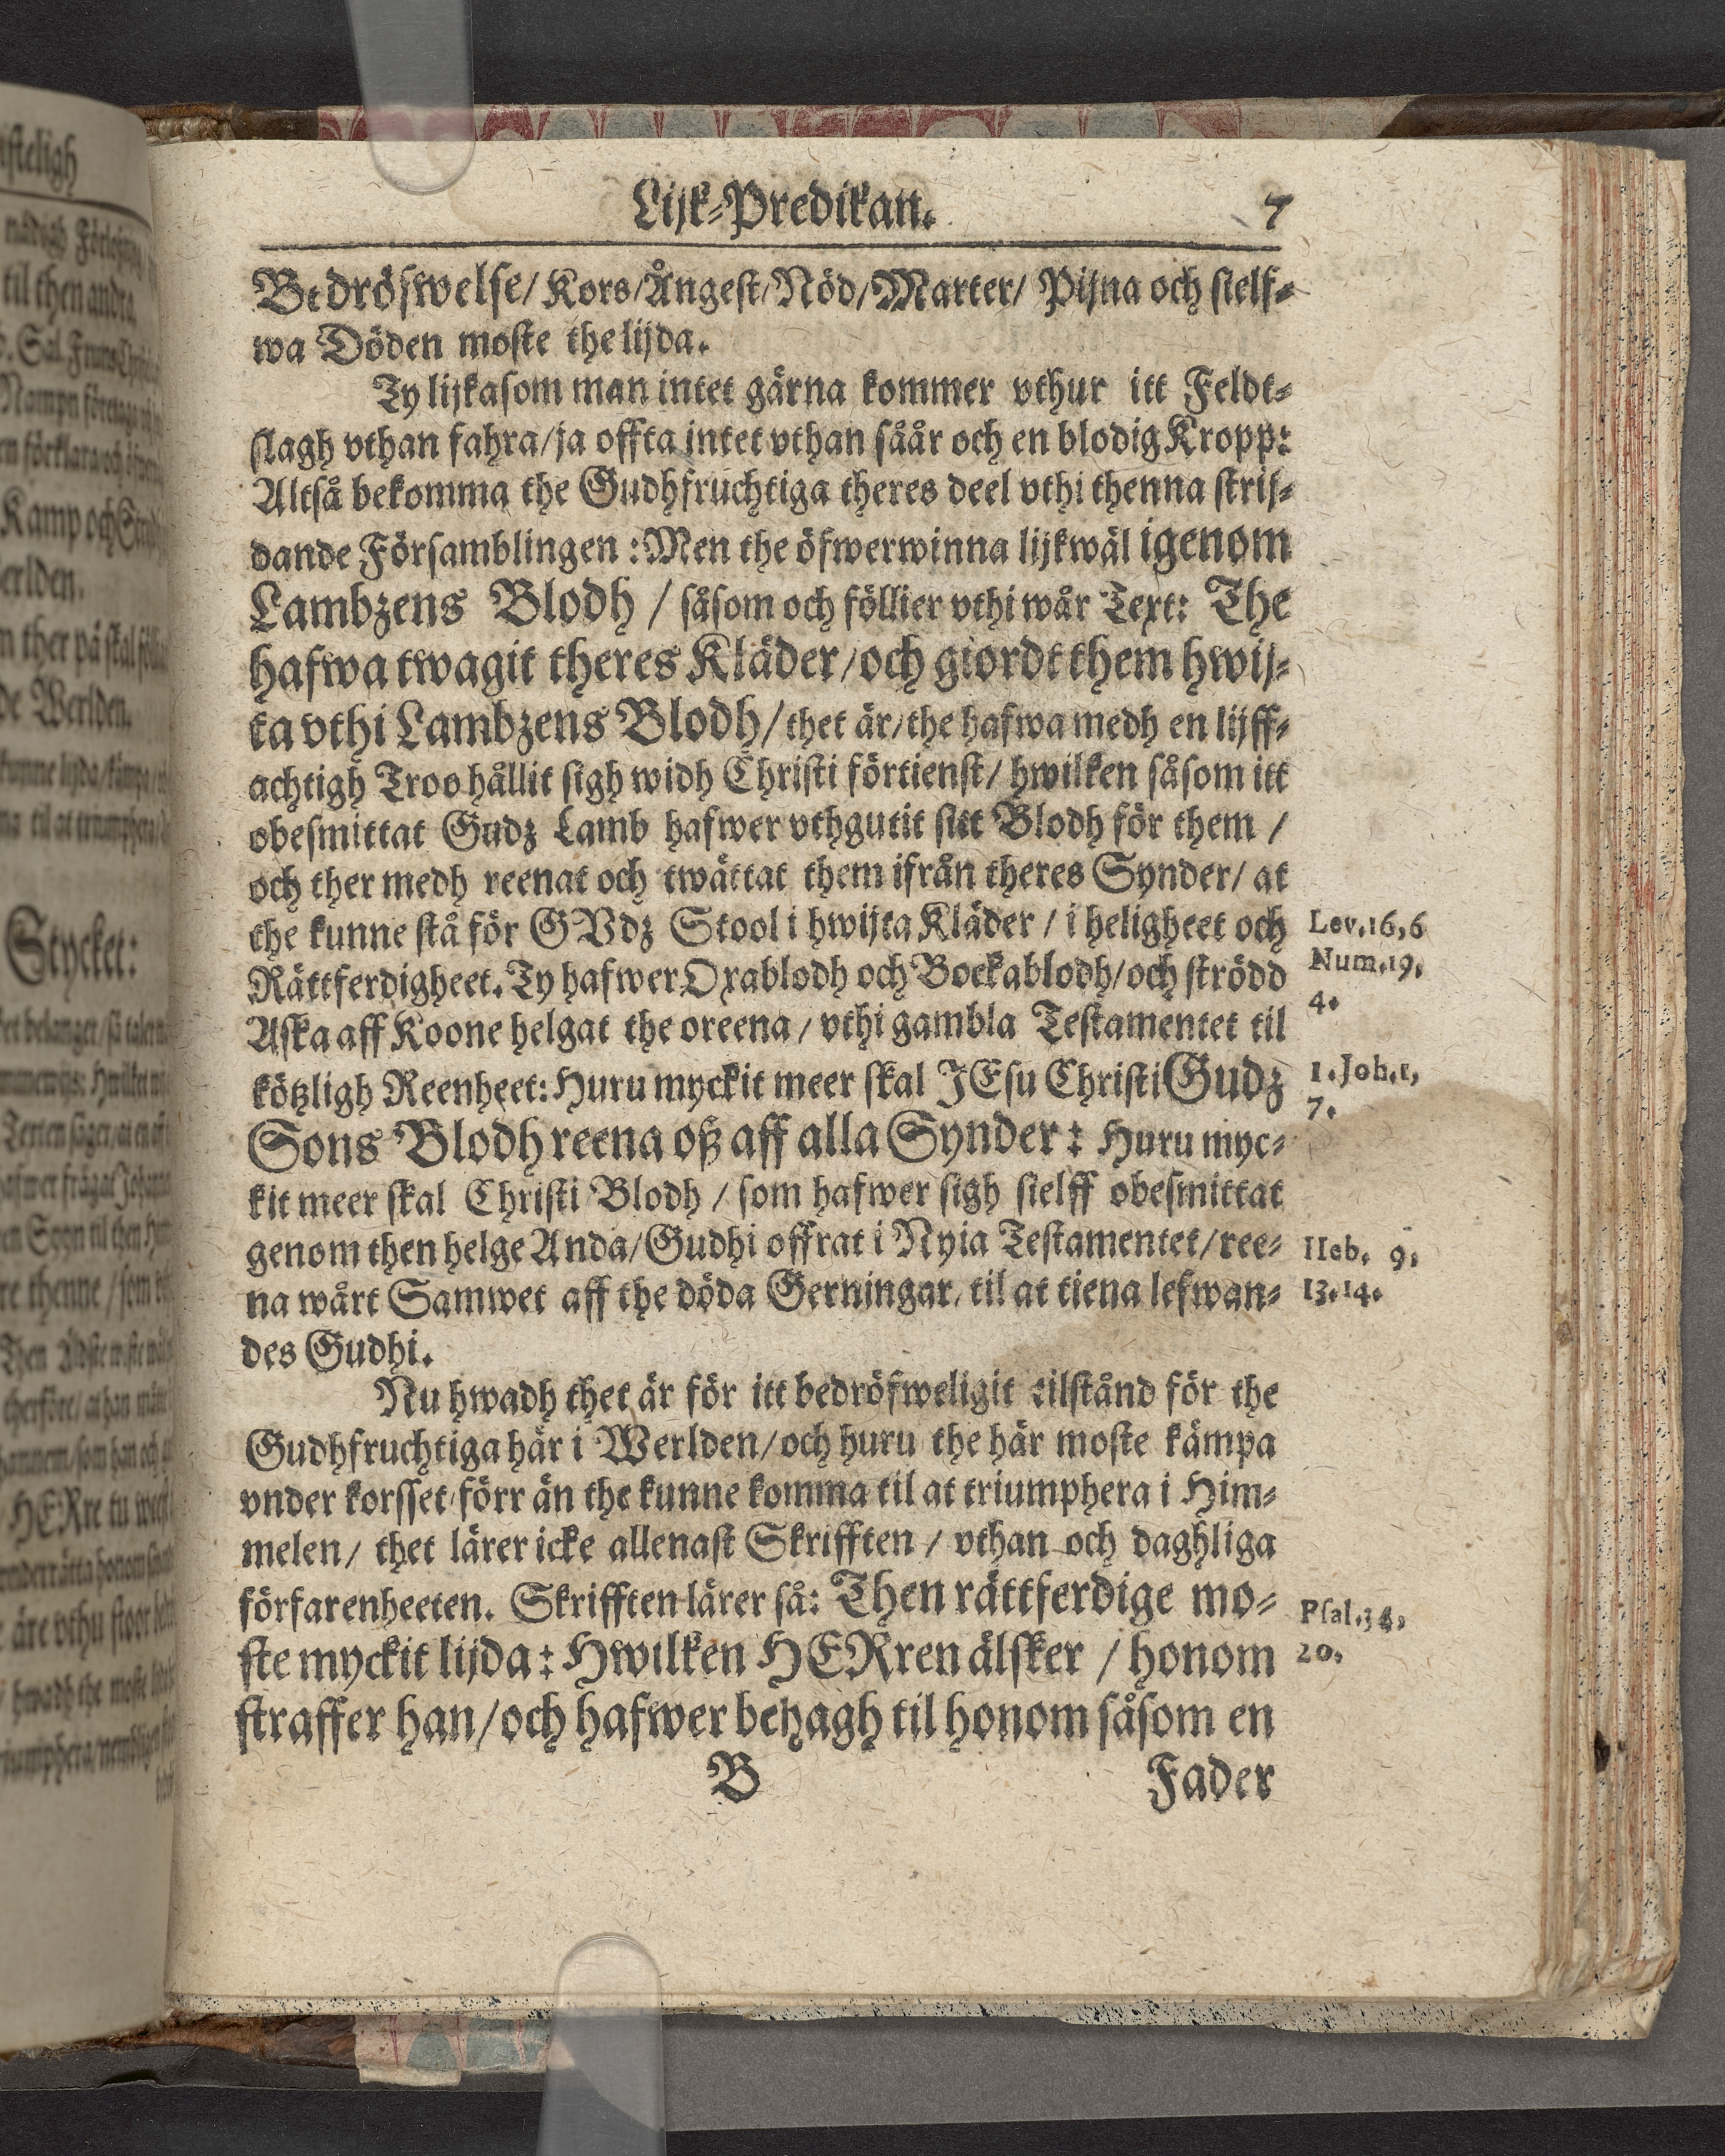 Lijk-Predikan. 7
Bedröfwelse/ Kors/Ångest/Nöd/Marter/ Pijna och sielf-
wa Döden moste the lijda.
Ty lijkasom man intet gärna kommer vthur itt Feldt-
slagh vthan fahra/ja offta intet vthan såår och en blodig Kropp:
Altså bekomma the Gudhfruchtiga theres deel vthi thenna strij-
dande Församblingen : Men the öfwerwinna lijkwäl igenom
Lambzens Blodh / såsom och föllier vthi wår Text: The
hafwa twagit theres Kläder/och giordt them hwij-
ta vthi Lambzens Blodh/ thet är/the hafwa medh en lijff-
achtigh Troo hållit sigh widh Christi förtienst/ hwilken såsom itt
obesmittat Gudz Lamb hafwer vthgutit sitt Blodh för them /
och ther medh reenat och twättat them ifrån theres Synder/ at
the kunne stå för GVdz Stool i hwijta Kläder / i heligheet och
Lev.16,6
Rättferdigheet. Ty hafwer Oxablodh och Bockablodh/och strödd
Num.19.
4.
Aska aff Koone helgat the oreena / vthi gambla Testamentet til
kötzligh Reenheet: Huru myckit meer skal JEsu Christi Gudz
1.Joh.1,
7.
Sons Blodh reena oß aff alla Synder : Huru myc-
kit meer skal Christi Blodh / som hafwer sigh sielff obesmittat
genom then helge Anda/Gudhi offrat i Nyia Testamentet/ree-
Heb. 9.
na wårt Samwet aff the döda Gerningar, til at tiena lefwan-
13.14.
des Gudhi.
Nu hwadh thet är för itt bedröfweligit tilstånd för the
Gudhfruchtiga här i Werlden/och huru the här moste kämpa
vnder korsset förr än the kunne komma til at triumphera i Him-
melen/ thet lärer icke allenast Skrifften / vthan och daghliga
förfarenheeten. Skrifften lärer så: Then rättferdige mo-
Psal.34,
ste myckit lijda : Hwilken HERren älsker / honom
20.
straffer han/och hafwer behagh til honom såsom en
B Fader